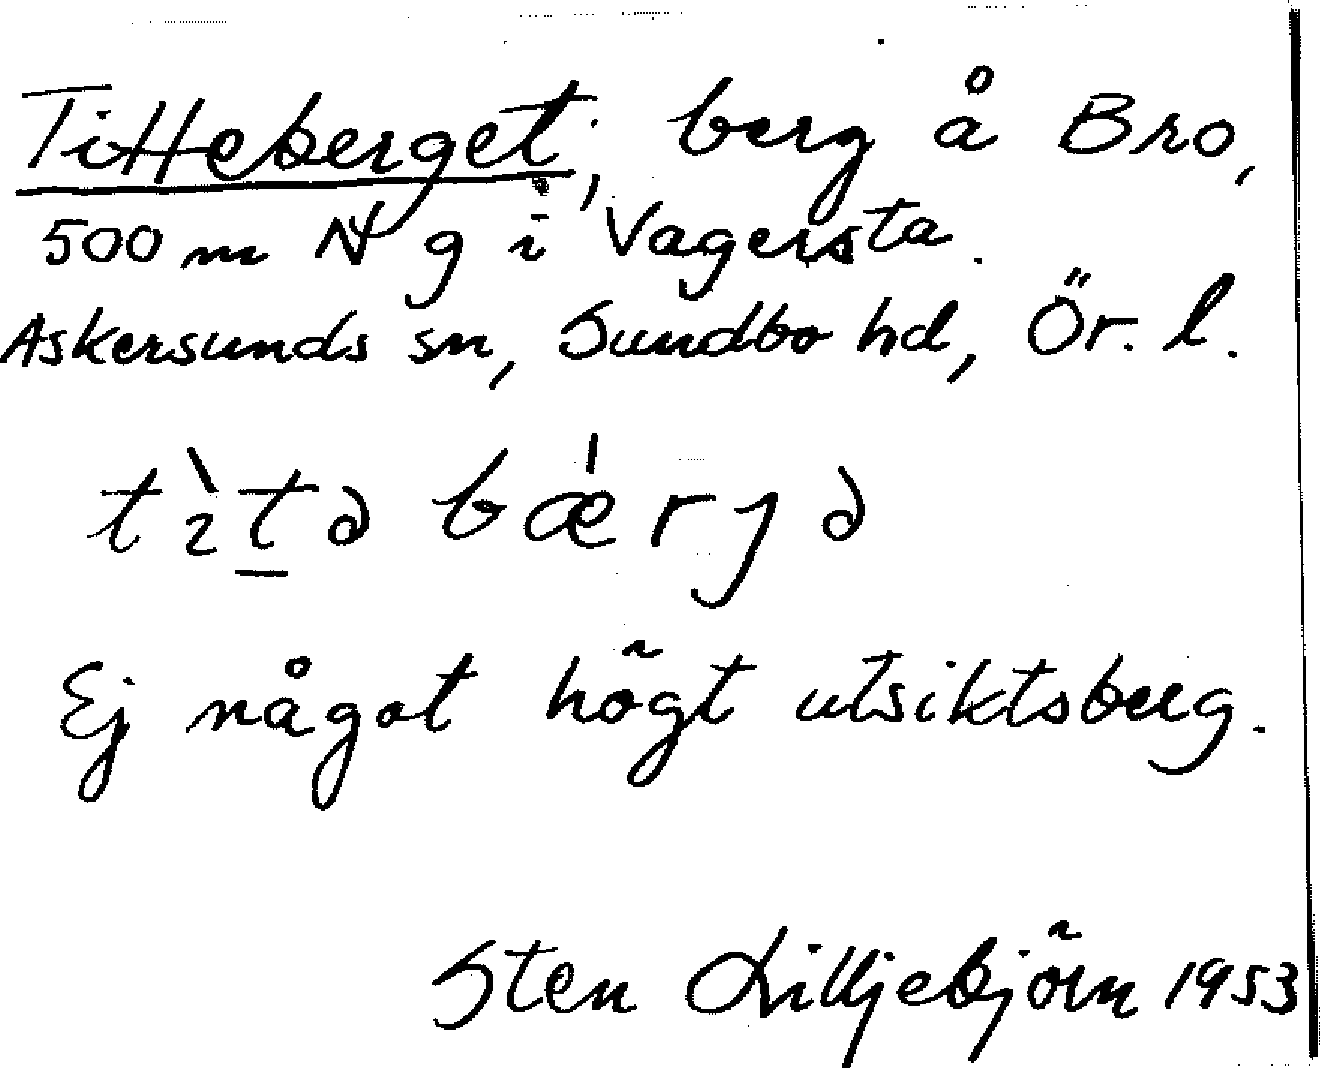 Titteberget, berg å Bro,
500 m N g i Vagersta.
Askersunds sn, Sundbo hd, Ör. l.
Ej något högt utsiktsberg.
Sten Lilljebjörn 1953